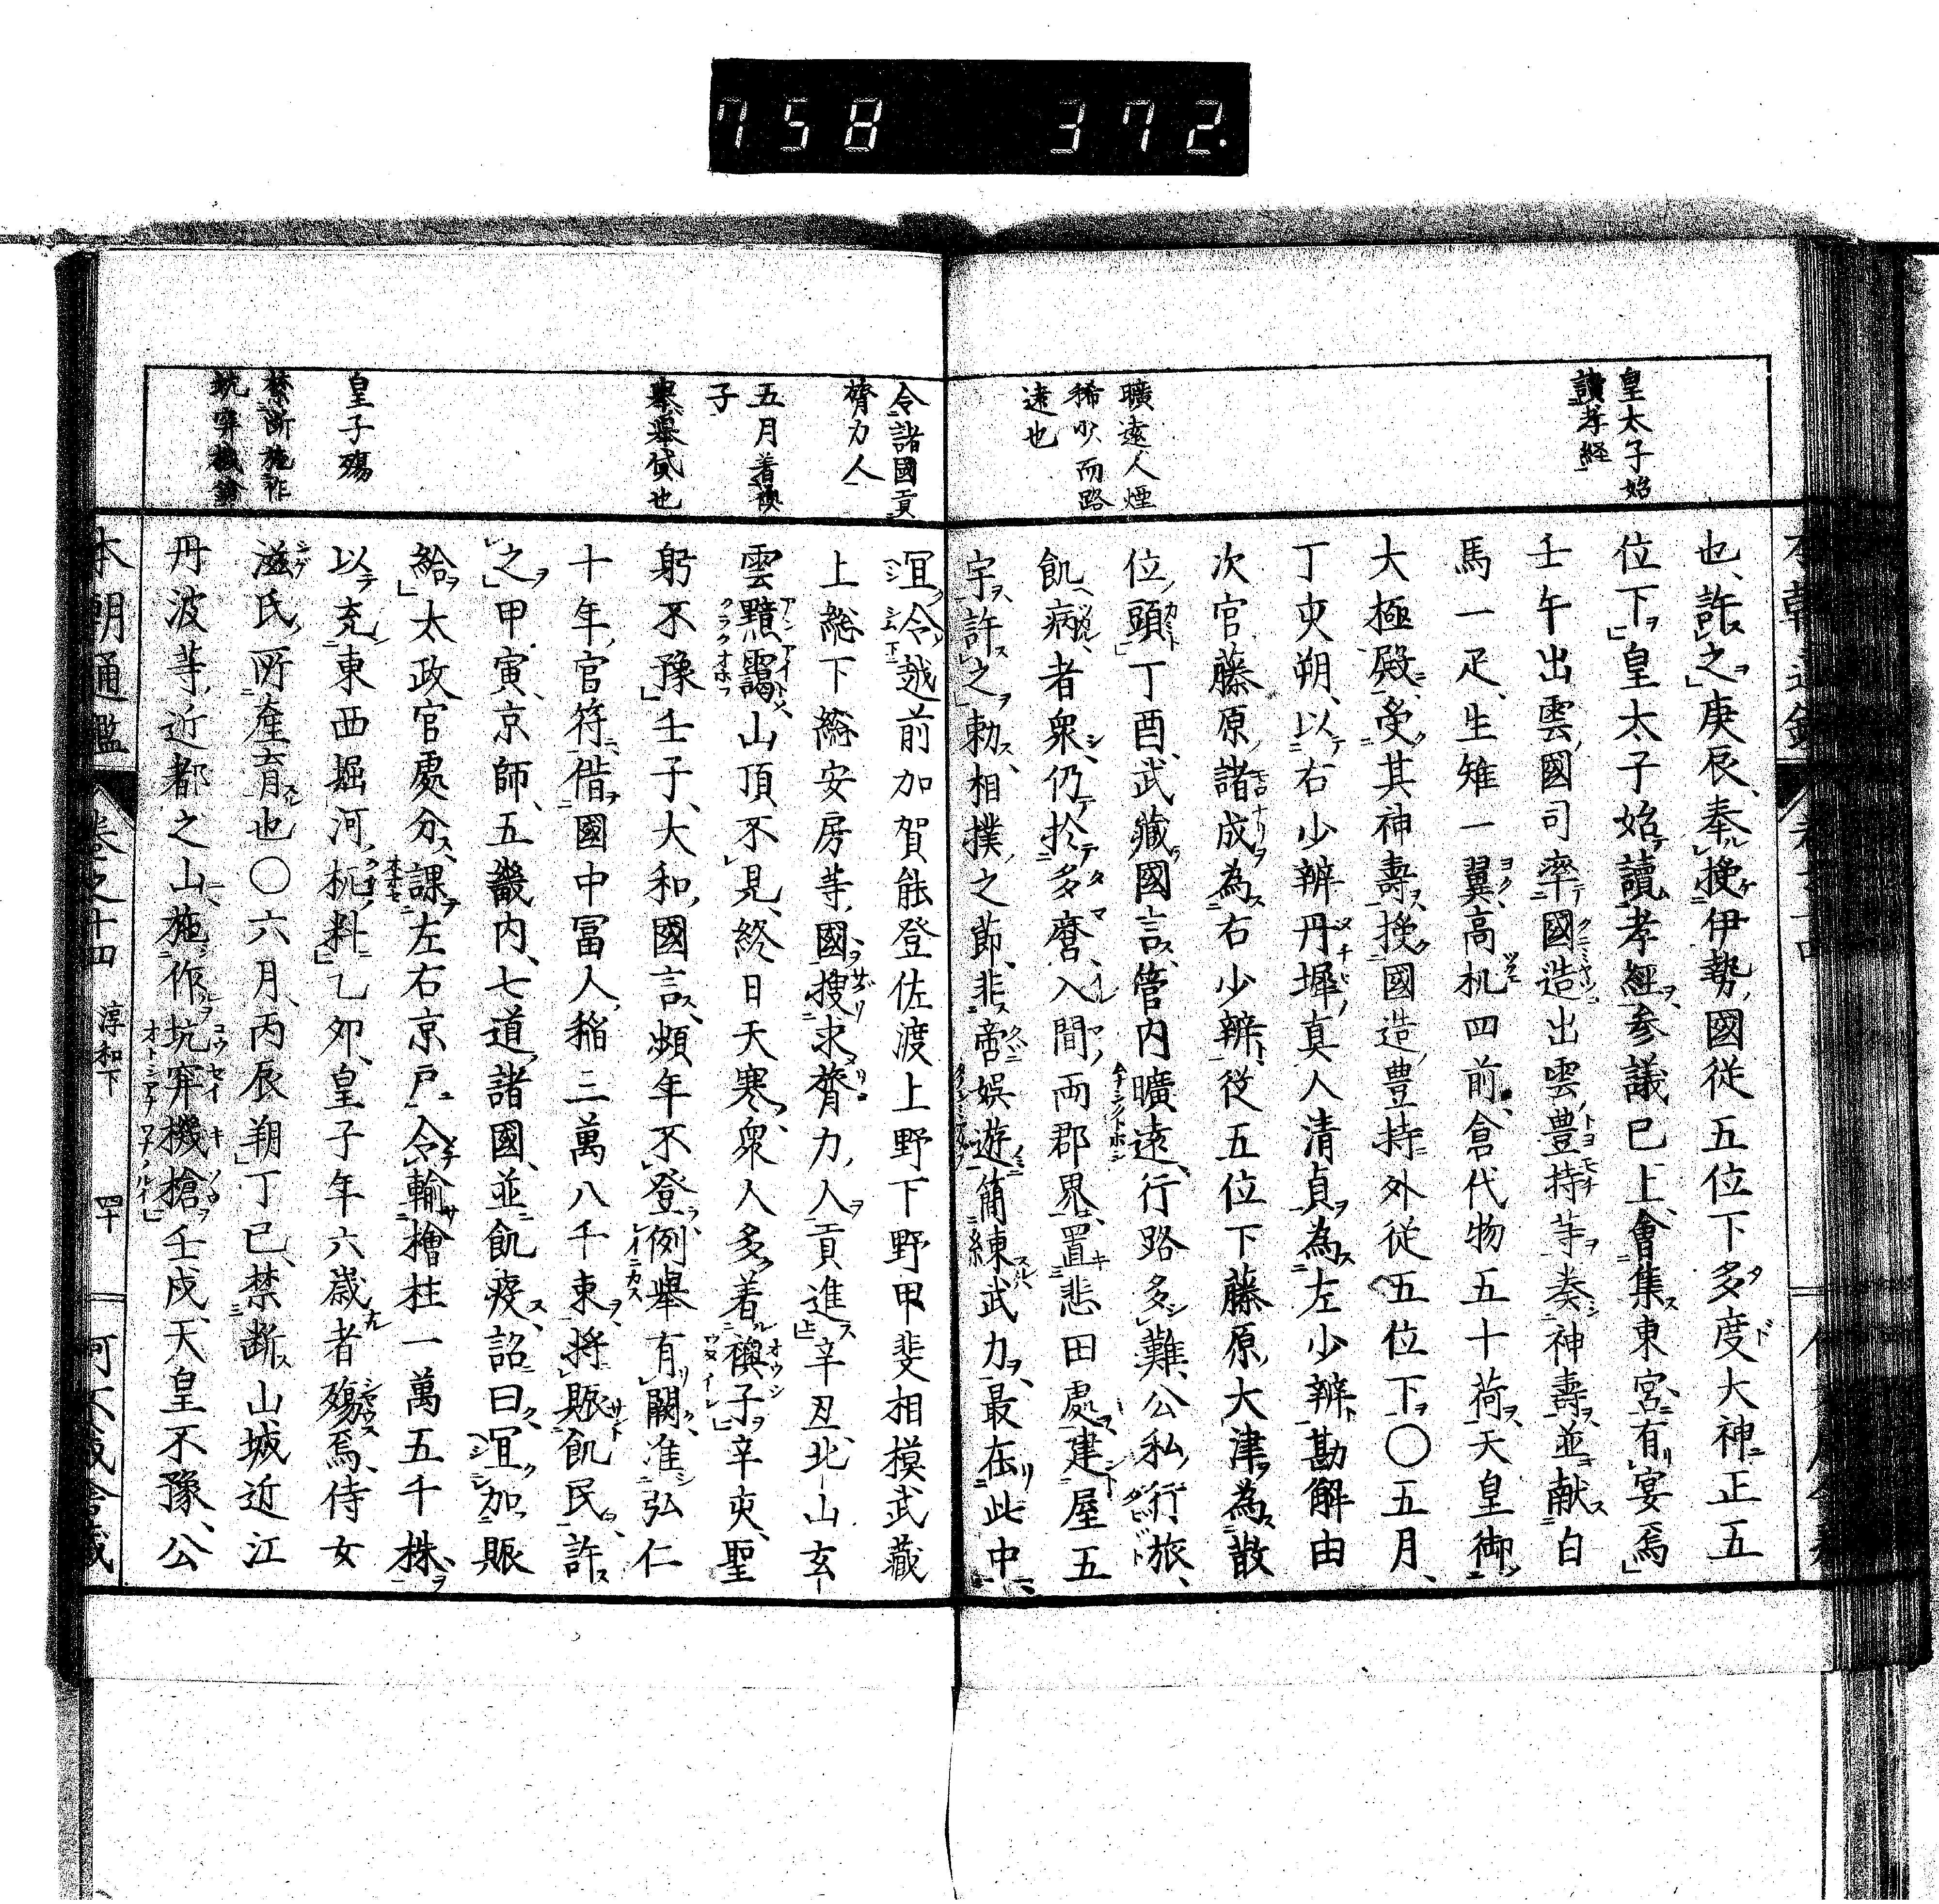 758 372.
皇太子始
讀孝經
曠遠人煙
稀少而路
遠也
也許之庚辰奉授伊勢國從五位下多度大神正五
位下皇太子始讀孝經參議已上會集東宮有宴焉
壬午出雲國司率國造出雲豊持等奏神壽並献白
馬一疋生雉一翼高机四前倉代物五十荷天皇御
大極殿受其神壽授國造豊持外從五位下〇五月
丁吏朔以右少辨丹墀真人清貞為左少辨勘解由
次官藤原諸成為右少辨從五位下藤原大津為散
位頭丁酉武藏國言管内曠遠行路多難公私行旅
飢病者衆仍於多麿入間兩郡界置悲田處建屋五
宇許之勅相撲之節非啻娯遊簡練武力最在此中
令諸國貢
膂力人
五月着襖
子
舉貸也
皇子殤
禁斷施作
坑穽機鎗
宜令越前加賀能登佐渡上野下野甲斐相模武藏
上総下総安房等國搜求膂力人貢進辛丑北山玄
雲黤靄山頂不見終日天寒衆人多着襖子辛吏聖
躬不豫壬子大和國言頻年不登例舉有闕准弘仁
十年官符借國中冨人稲三萬八千束将賑飢民許
之甲寅京師五畿内七道諸國並飢疫詔曰宜加賑
給太政官處分課左右京戸令輸擔柱一萬五千株
以充東西堀河杭料乙卯皇子年六歳者殤焉侍女
滋氏所產育也〇六月丙辰朔丁已禁斷山城近江
丹波等近都之山施作坑穽機槍壬戌天皇不豫公
本朝通鑑 卷之十四 淳和下 四十